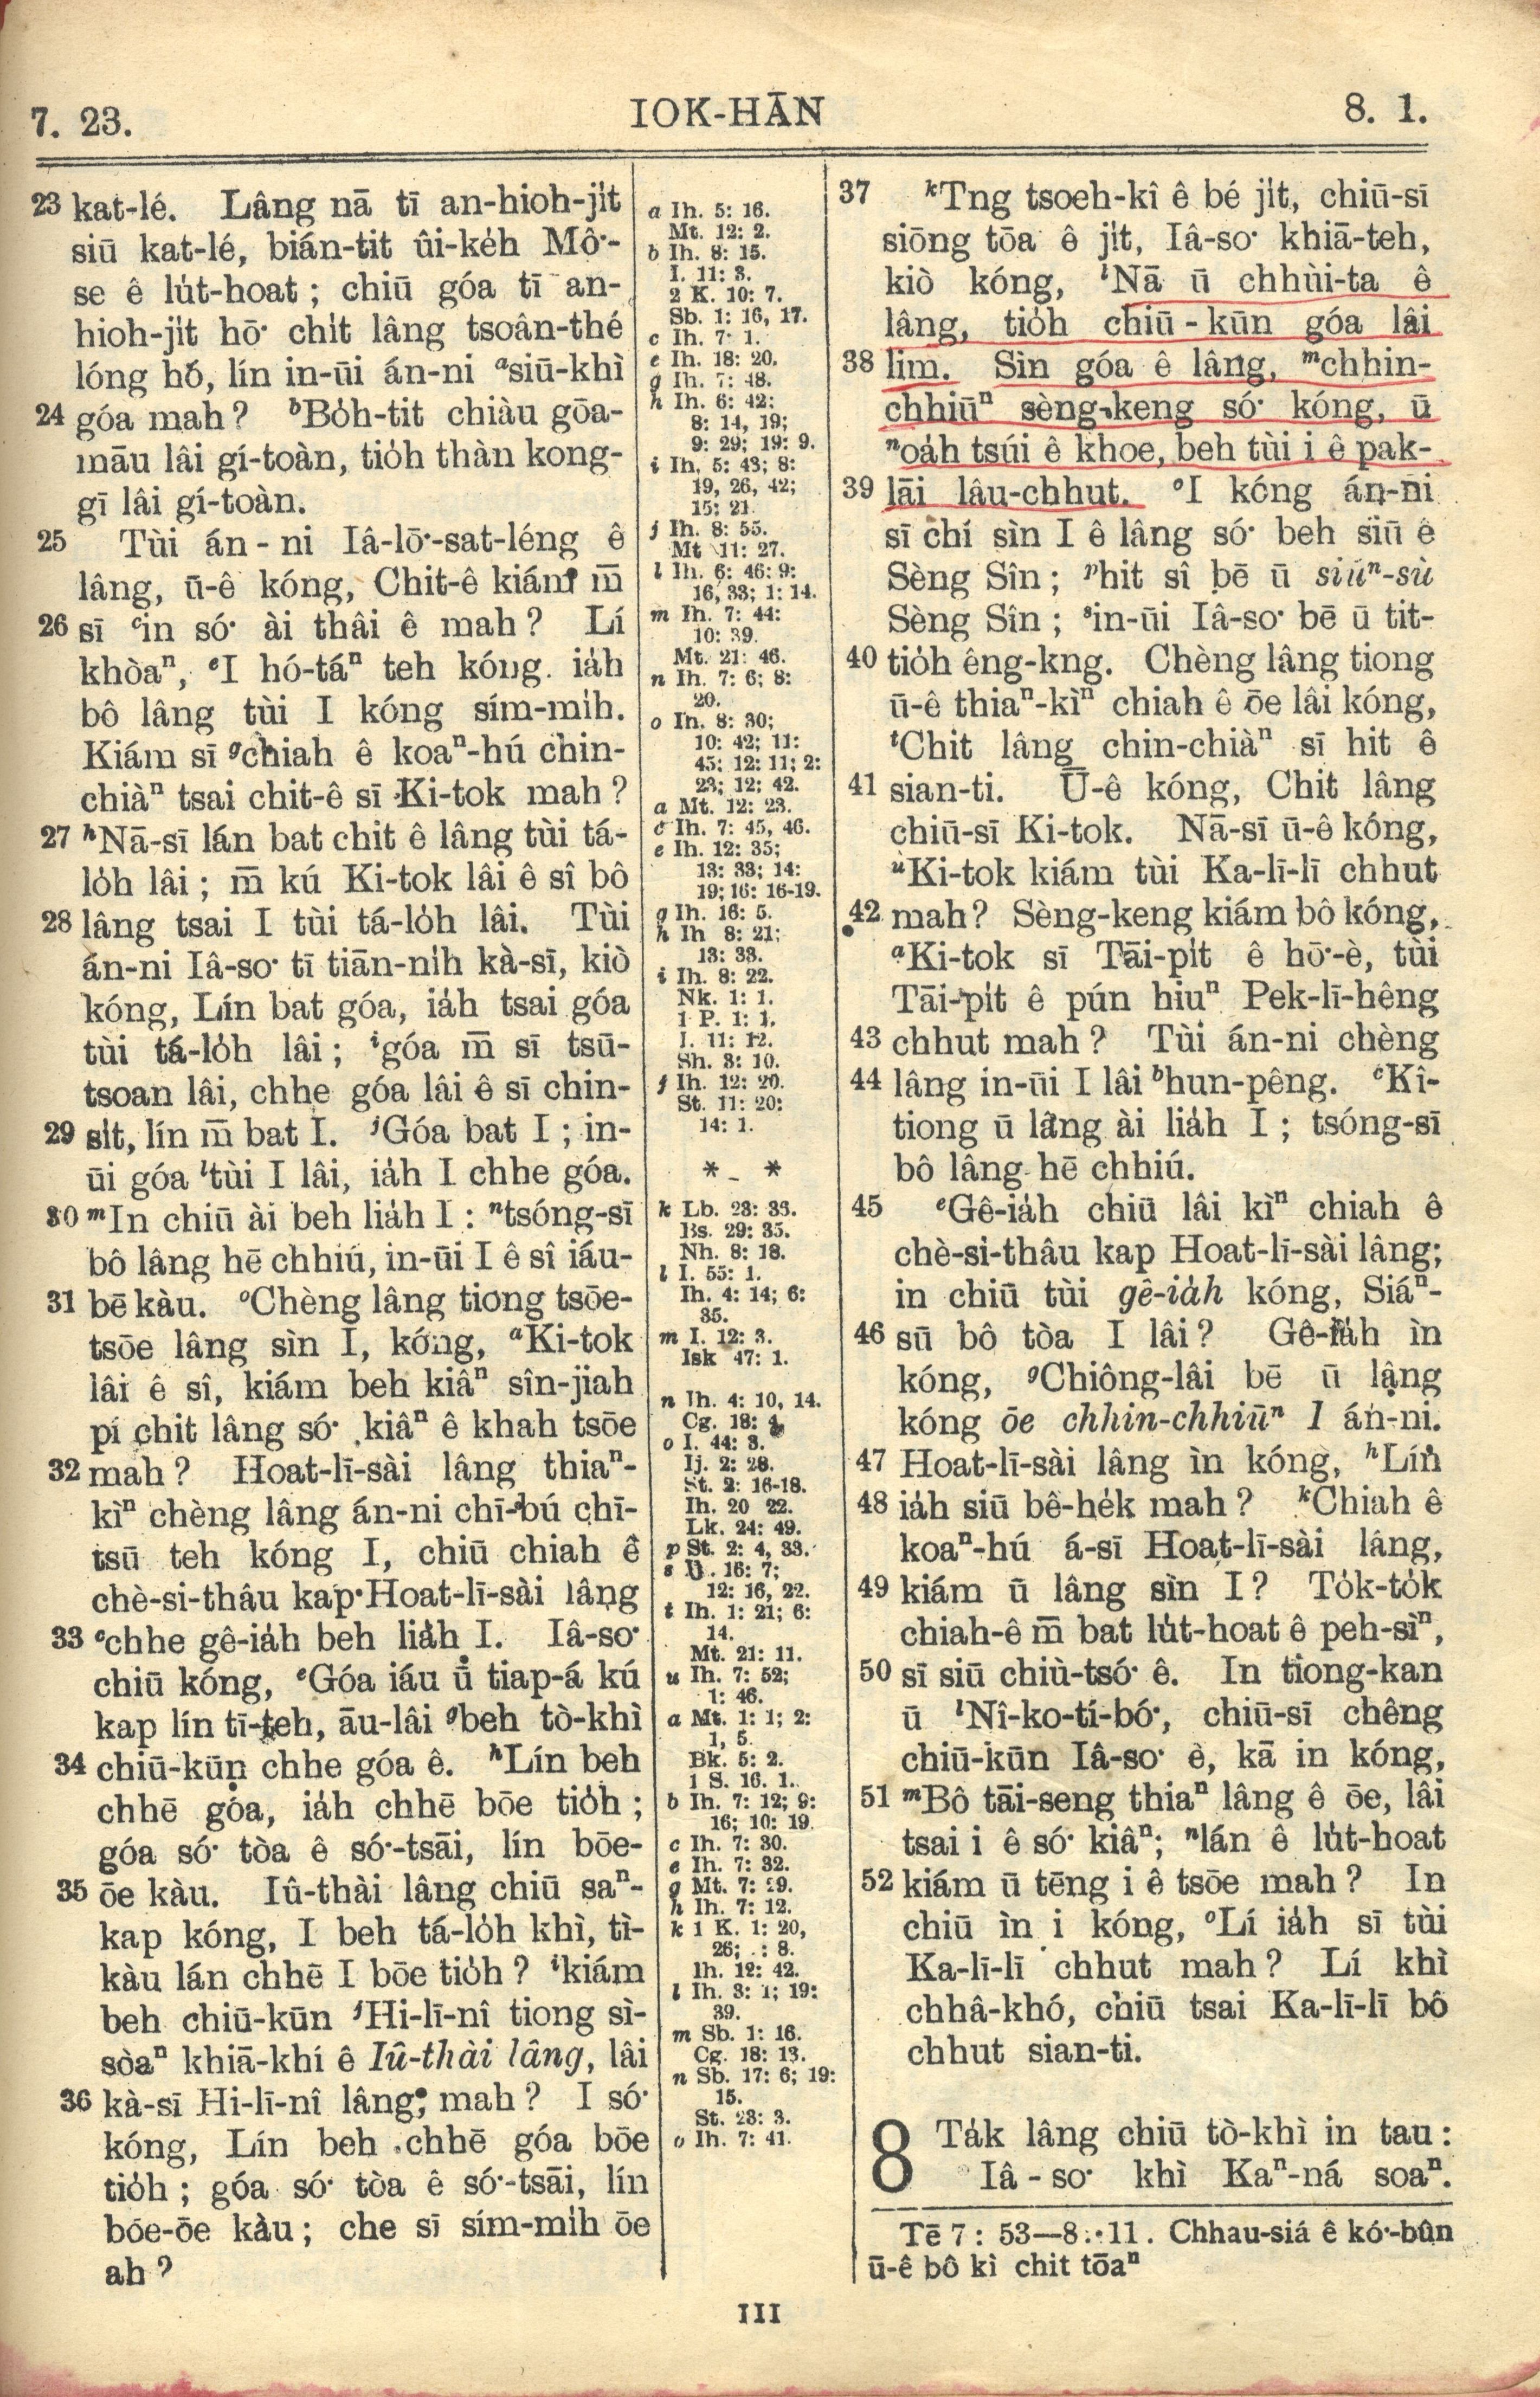 7. 23.
IOK-HĀN
8. 1.
23 kat-lé. Lâng nā tī an-hioh-ji̍t
siū kat-lé, bián-tit ûi-ke̍h Mô͘-
se ê lu̍t-hoat ; chiū góa tī an-
hioh-ji̍t hō͘ chi̍t lâng tsoân-thé
lóng hó, lín in-ūi án-ni ᵃsiū-khì
24 góa mah ? ᵇBo̍h-tit chiàu gōa-
māu lâi gí-toàn, tio̍h thàn kong-
gī lâi gí-toàn.
25 Tùi án - ni Iâ-lō͘-sat-léng ê
lâng, ū-ê kóng, Chit-ê kiám m̄
26 sī ᶜin só͘ ài thâi ê mah ? Lí
khòaⁿ, ᵉI hó-táⁿ teh kóng. ia̍h
bô lâng tùi I kóng sím-mi̍h.
Kiám sī ᵍchiah ê koaⁿ-hú chin-
chiàⁿ tsai chit-ê sī Ki-tok mah ?
27 ʰNā-sī lán bat chit ê lâng tùi tá-
lo̍h lâi ; m̄ kú Ki-tok lâi ê sî bô
28 lâng tsai I tùi tá-lo̍h lâi. Tùi
án-ni Iâ-so͘ tī tiān-ni̍h kà-sī, kiò
kóng, Lín bat góa, ia̍h tsai góa
tùi tá-lo̍h lâi ; ⁱgóa m̄ sī tsū-
tsoan lâi, chhe góa lâi ê sī chin-
29 si̍t, lín m̄ bat I. ʲGóa bat I ; in-
ūi góa ˡtùi I lâi, ia̍h I chhe góa.
30 ᵐIn chiū ài beh lia̍h I : ⁿtsóng-sī
bô lâng hē chhiú, in-ūi I ê sî iáu-
31 bē kàu. ᵒChèng lâng tiong tsōe-
tsōe lâng sìn I, kóng, ᵃKi-tok
lâi ê sî, kiám beh kiâⁿ sîn-jiah
pí chit lâng só͘ kiâⁿ ê khah tsōe
32 mah ? Hoat-lī-sài lâng thiaⁿ-
kìⁿ chèng lâng án-ni chī-bú chī-
tsū teh kóng I, chiū chiah ê
chè-si-thâu kap Hoat-lī-sài lâng
33 ᶜchhe gê-ia̍h beh lia̍h I. Iâ-so͘
chiū kóng, ᵉGóa iáu ū tiap-á kú
kap lín tī-teh, āu-lâi ᵍbeh tò-khì
34 chiū-kūn chhe góa ê. ʰLín beh
chhē góa, ia̍h chhē bōe tio̍h ;
góa só͘ tòa ê só͘-tsāi, lín bōe-
35 ōe kàu. Iû-thài lâng chiū saⁿ-
kap kóng, I beh tá-lo̍h khì, tì-
kàu lán chhē I bōe tio̍h ? ⁱkiám
beh chiū-kūn ʲHi-lī-nî tiong sì-
sòaⁿ khiā-khí ê Iû-thài lâng, lâi
36 kà-sī Hi-lī-nî lâng, mah ? I só͘
kóng, Lín beh chhē góa bōe
tio̍h ; góa só͘ tòa ê só͘-tsāi, lín
bōe-ōe kàu ; che sī sím-mi̍h ōe
ah ?
a Ih. 5: 16.
Mt. 12: 2.
b Ih. 8: 15.
I. 11: 3.
2 K. 10: 7.
Sb. 1: 16, 17.
c Ih. 7: 1.
e Ih. 18: 20.
g Ih. 7: 48.
h Ih. 6: 42;
8: 14, 19;
9: 29; 19: 9.
i Ih. 5: 43; 8:
19, 26, 42;
15: 21.
j Ih. 8: 55.
Mt 11: 27.
l Ih. 6: 46: 9:
16, 33; 1: 14.
m Ih. 7: 44:
10: 39.
Mt. 21: 46.
n Ih. 7: 6; 8:
20.
o Ih. 8: 30;
10: 42; 11:
45; 12: 11; 2:
23; 12; 42.
a Mt. 12: 23.
c Ih. 7: 45, 46.
e Ih. 12: 35;
13: 33; 14:
19; 16: 16-19.
g Ih. 16: 5.
h Ih 8: 21;
13: 33.
i Ih. 8: 22.
Nk. 1: 1.
1 P. 1: 1.
I. 11: 12.
Sh. 3: 10.
j Ih. 12: 20.
St. 11: 20:
14: 1.
* - *
k Lb. 23: 36.
Bs. 29: 35.
Nh. 8: 18.
l I. 55: 1.
Ih. 4: 14; 6:
35.
m I. 12: 3.
Isk 47: 1.
n Ih. 4: 10, 14.
Cg. 18: 4.
o I. 44: 3.
Ij. 2: 28.
St. 2: 16-18.
Ih. 20 22.
Lk. 24: 49.
p St. 2: 4, 33.
s 16: 7;
12: 16, 22.
t Ih. 1: 21; 6:
14.
Mt. 21: 11.
u Ih. 7: 52;
1: 46.
a Mt. 1: 1; 2:
1, 5.
Bk. 5: 2.
1 S. 16. 1.
b Ih. 7: 12; 9:
16; 10: 19.
c Ih. 7: 30.
e Ih. 7: 32.
g Mt. 7: 29.
h Ih. 7: 12.
k 1 K. 1: 20,
26; : 8.
Ih. 12: 42.
l Ih. 3: 1; 19:
39.
m Sb. 1: 16.
Cg. 18: 13.
n Sb. 17: 6; 19:
15.
St. 23: 3.
o Ih. 7: 41.
37 ᵏTng tsoeh-kî ê bé ji̍t, chiū-sī
siōng tōa ê ji̍t, Iâ-so͘ khiā-teh,
kiò kóng, ˡNā ū chhùi-ta ê
lâng, tio̍h chiū - kūn góa lâi
38 lim. Sìn góa ê lâng, ᵐchhin-
chhiūⁿ sèng-keng só͘ kóng, ū
ⁿoa̍h tsúi ê khoe, beh tùi i ê pak-
39 lāi lâu-chhut. ᵒI kóng án-ni
sī chí sìn I ê lâng só͘ beh siū ê
Sèng Sîn ; ᵖhit sî bē ū siúⁿ-sù
Sèng Sîn ; ˢin-ūi Iâ-so͘ bē ū tit-
40 tio̍h êng-kng. Chèng lâng tiong
ū-ê thiaⁿ-kìⁿ chiah ê ōe lâi kóng,
ᵗChit lâng chin-chiàⁿ sī hit ê
41 sian-ti. Ū-ê kóng, Chit lâng
chiū-sī Ki-tok. Nā-sī ū-ê kóng,
ᵘKi-tok kiám tùi Ka-lī-lī chhut
42 mah ? Sèng-keng kiám bô kóng,
ᵃKi-tok sī Tāi-pi̍t ê hō͘-è, tùi
Tāi-pi̍t ê pún hiuⁿ Pek-lī-hêng
43 chhut mah ? Tùi án-ni chèng
44 lâng in-ūi I lâi ᵇhun-pêng. ᶜKî-
tiong ū lâng ài lia̍h I ; tsóng-sī
bô lâng hē chhiú.
45 ᵉGê-ia̍h chiū lâi kìⁿ chiah ê
chè-si-thâu kap Hoat-lī-sài lâng;
in chiū tùi gê-ia̍h kóng, Siáⁿ-
46 sū bô tòa I lâi ? Gê-ia̍h ìn
kóng, ᵍChiông-lâi bē ū lâng
kóng ōe chhin-chhiūⁿ I án-ni.
47 Hoat-lī-sài lâng ìn kóng, ʰLín
48 ia̍h siū bê-he̍k mah ? ᵏChiah ê
koaⁿ-hú á-sī Hoat-lī-sài lâng,
49 kiám ū lâng sìn I ? To̍k-to̍k
chiah-ê m̄ bat lu̍t-hoat ê peh-sìⁿ,
50 sī siū chiù-tsó͘ ê. In tiong-kan
ū ˡNî-ko-tí-bó͘, chiū-sī chêng
chiū-kūn Iâ-so͘ ê, kā in kóng,
51 ᵐBô tāi-seng thiaⁿ lâng ê ōe, lâi
tsai i ê só͘ kiâⁿ; ⁿlán ê lu̍t-hoat
52 kiám ū tēng i ê tsōe mah ? In
chiū ìn i kóng, ᵒLí ia̍h sī tùi
Ka-lī-lī chhut mah ? Lí khì
chhâ-khó, chiū tsai Ka-lī-lī bô
chhut sian-ti.
8 Ta̍k lâng chiū tò-khì in tau :
Iâ - so͘ khì Kaⁿ-ná soaⁿ.
Tē 7 : 53—8 : 11. Chhau-siá ê kó͘-bûn
ū-ê bô kì chit tōaⁿ
III